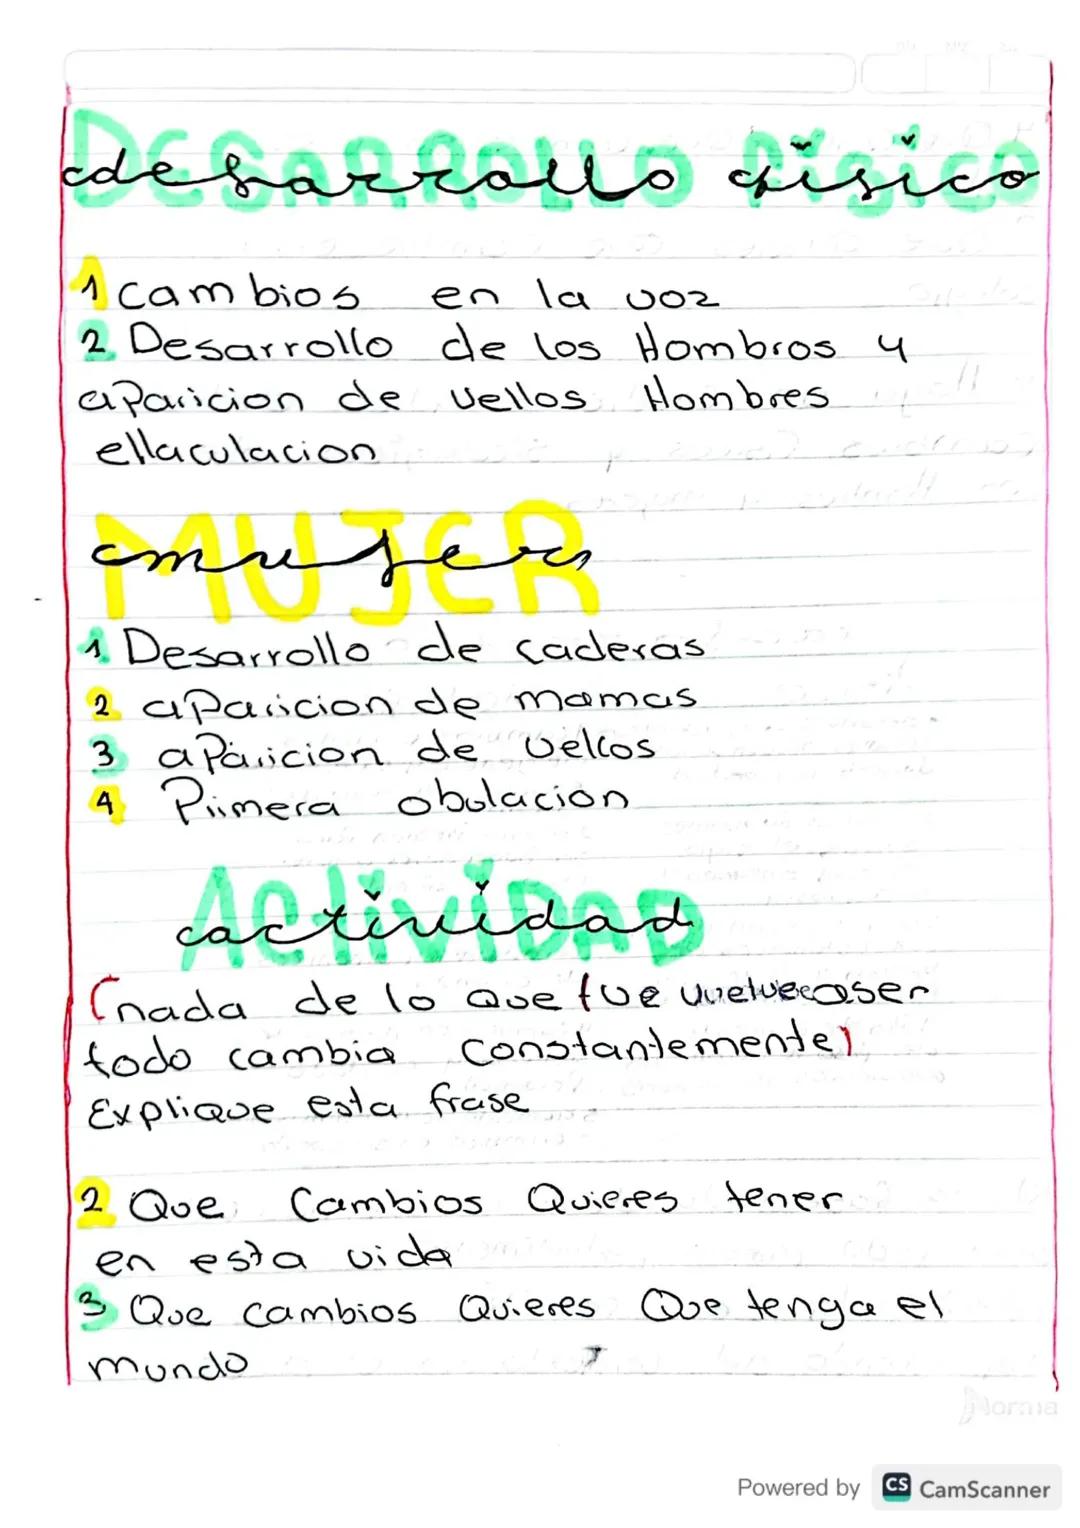 desarrollo físico
1 cambios en la voz
2 Desarrollo de los Hombros y
aparicion de vellos Hombres
ellaculacion
mujer
1 Desarrollo de caderas
2 aparicion de mamas
3 aparicion de vellos
4 Primera obulacion
actividad
(nada de lo que fue vuelve a ser
todo cambia constantemente)
Explique esta frase
2 Que Cambios Quieres tener
en esta vida
3 Que cambios Quieres Que tenga el
mundo
Norma
Powered by CS CamScanner